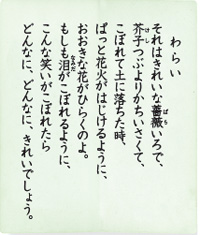 わらい
それはきれいな薔薇いろで、
芥子つぶよりかちいさくて、
こぼれて土に落ちた時、
ぱっと花火がはじけるように、
おおきな花がひらくのよ。
もしも泪がこぼれるように、
こんな笑いがこぼれたら
どんなに、どんなに、きれいでしょう。